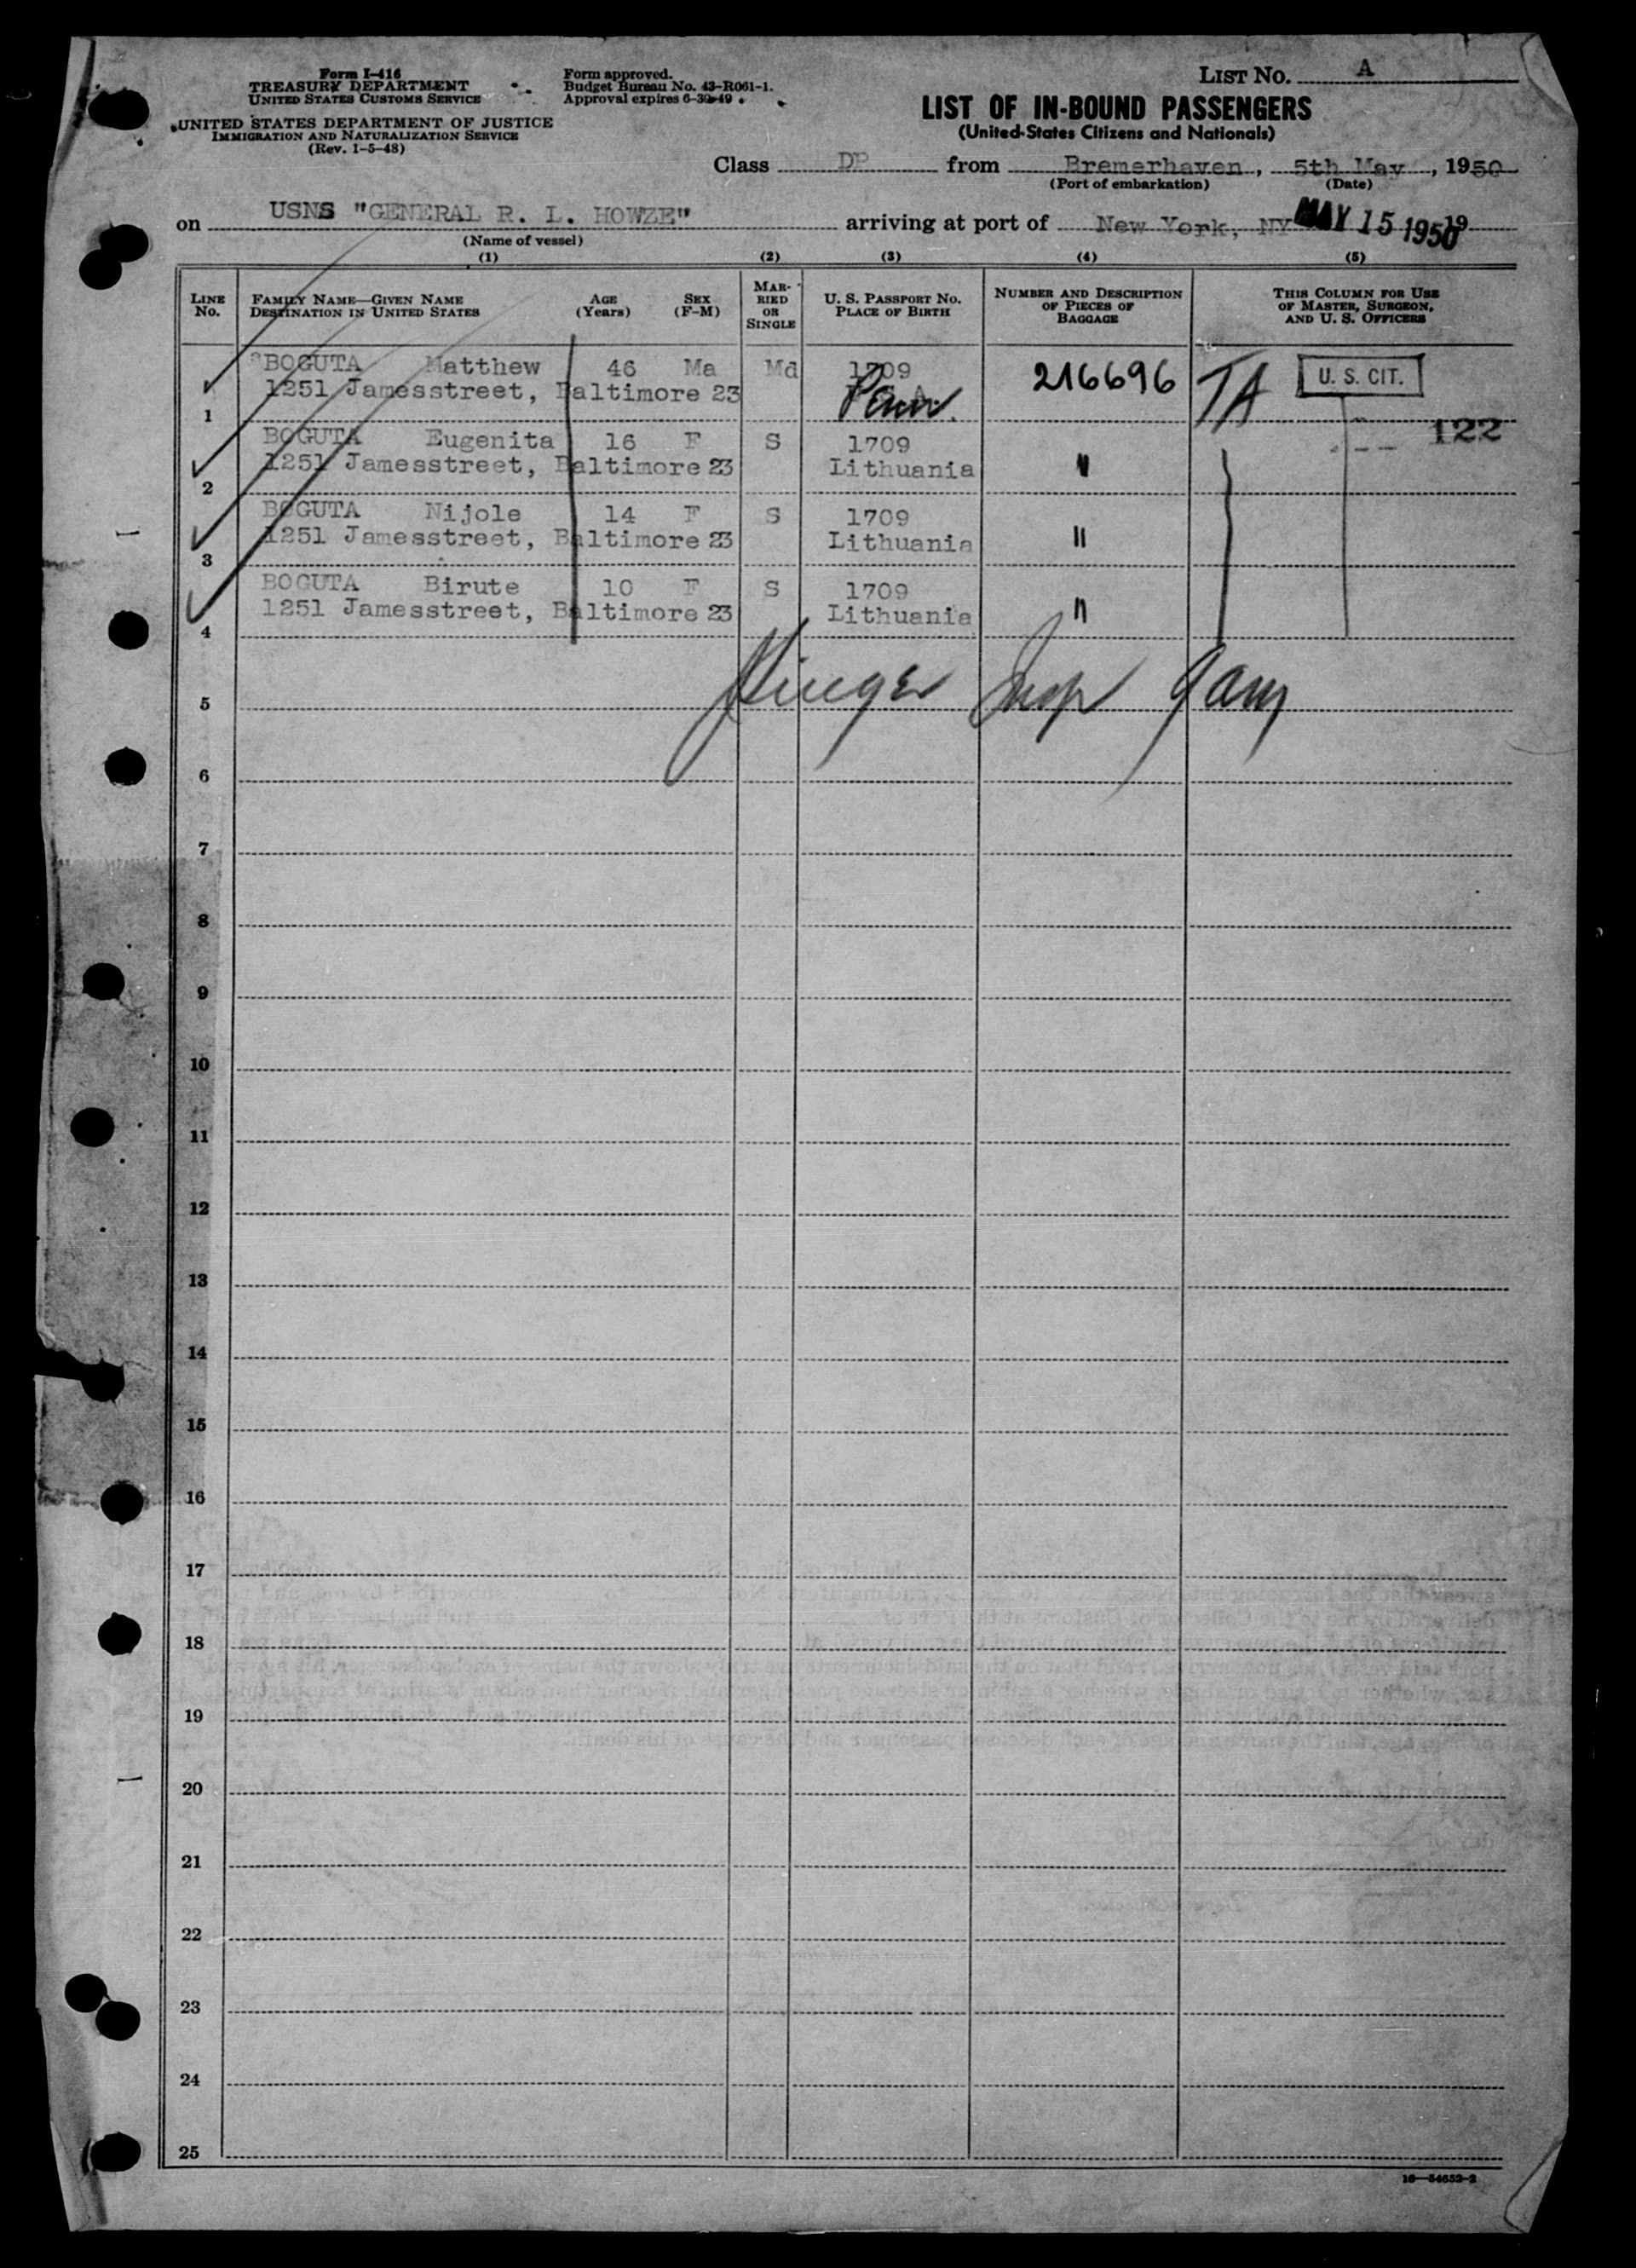 Form I-416
TREASURY DEPARTMENT
UNITED STATES CUSTOMS SERVICE
UNITED STATES DEPARTMENT OF JUSTICE
IMMIGRATION AND NATURALIZATION SERVICE
(Rev. 1-5-48)
Form approved.
Budget Bureau No. 43-R061-1.
Approval expires 6-30-49.
LIST NO. A
LIST OF IN-BOUND PASSENGERS
(United States Citizens and Nationals)
Class DP from Bremerhaven, 5th May, 1950
(Port of embarkation) (Date)
on USNS "GENERAL R. L. HOWZE" arriving at port of New York, NY MAY 15 1950 19
(Name of vessel)
(1) (2) (3) (4) (5)
LINE NO.
FAMILY NAME—GIVEN NAME
DESTINATION IN UNITED STATES
AGE (Years)
SEX (F-M)
MARRIED OR SINGLE
U. S. PASSPORT NO.
PLACE OF BIRTH
NUMBER AND DESCRIPTION OF PIECES OF BAGGAGE
THIS COLUMN FOR USE OF MASTER, SURGEON, AND U. S. OFFICERS
BOGUTA Matthew 46 Ma Md 1709 216696 TA U. S. CIT.
1 1251 Jamesstreet, Baltimore 23 Penn.
122
BOGUTA Eugenita 16 F S 1709
2 1251 Jamesstreet, Baltimore 23 Lithuania "
BOGUTA Nijole 14 F S 1709
3 1251 Jamesstreet, Baltimore 23 Lithuania "
BOGUTA Birute 10 F S 1709
4 1251 Jamesstreet, Baltimore 23 Lithuania "
5
6
7
8
9
10
11
12
13
14
15
16
17
18
19
20
21
22
23
24
25
16—54632-2